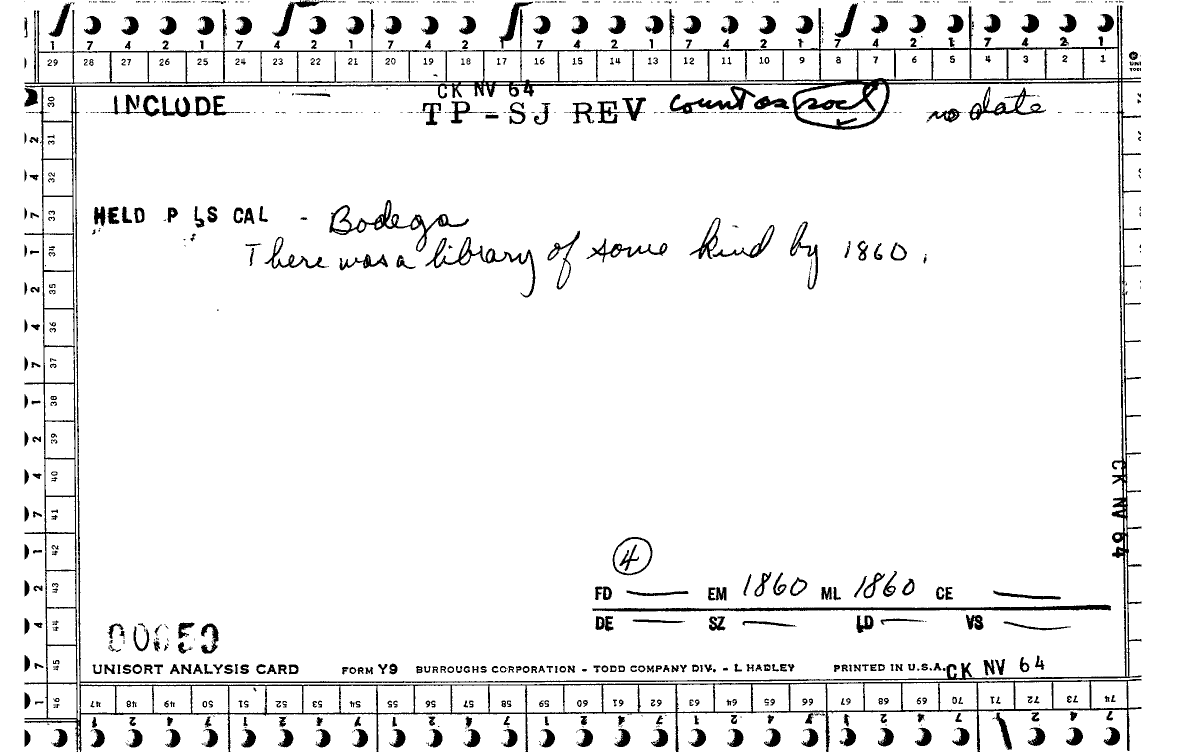 1 7 4 2 1 7 4 2 1 7 4 2 1 7 4 2 1 7 4 2 1 7 4 2 1 7 4 2 1
29 28 27 26 25 24 23 22 21 20 19 18 17 16 15 14 13 12 11 10 9 8 7 6 5 4 3 2 1
CK NV 64
INCLUDE TP-SJ REV count as socl no date
HELD P LS CAL - Bodega
There was a library of some kind by 1860.
30
2 31
4 32
7 33
1 34
2 35
4 36
7 37
1 38
2 39
4 40
7 41
1 42
2 43
4 44
7 45
1 46
CK NV 64
4
FD — EM 1860 ML 1860 CE —
DE — SZ — LD — VS —
00050
UNISORT ANALYSIS CARD FORM Y9 BURROUGHS CORPORATION - TODD COMPANY DIV. - L HADLEY PRINTED IN U.S.A. CK NV 64
47 48 49 50 51 52 53 54 55 56 57 58 59 60 61 62 63 64 65 66 67 68 69 70 71 72 73 74